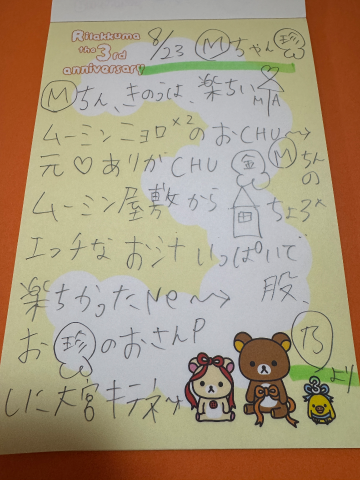 Rilakkuma
the 3rd
anniversary
8/23 Mちゃん 珍
Mちん、きのっは、楽ちい
MA
ムーミンニョロ×2のおCHU〜
元♡ありがCHU 金 Mちんの
ムーミン屋敷から 田 ちょろ×
エッチなお汁いっぱいで
楽ちかったNe〜 股、
お珍のおさんP 乃より
しに大宮キテネ〜